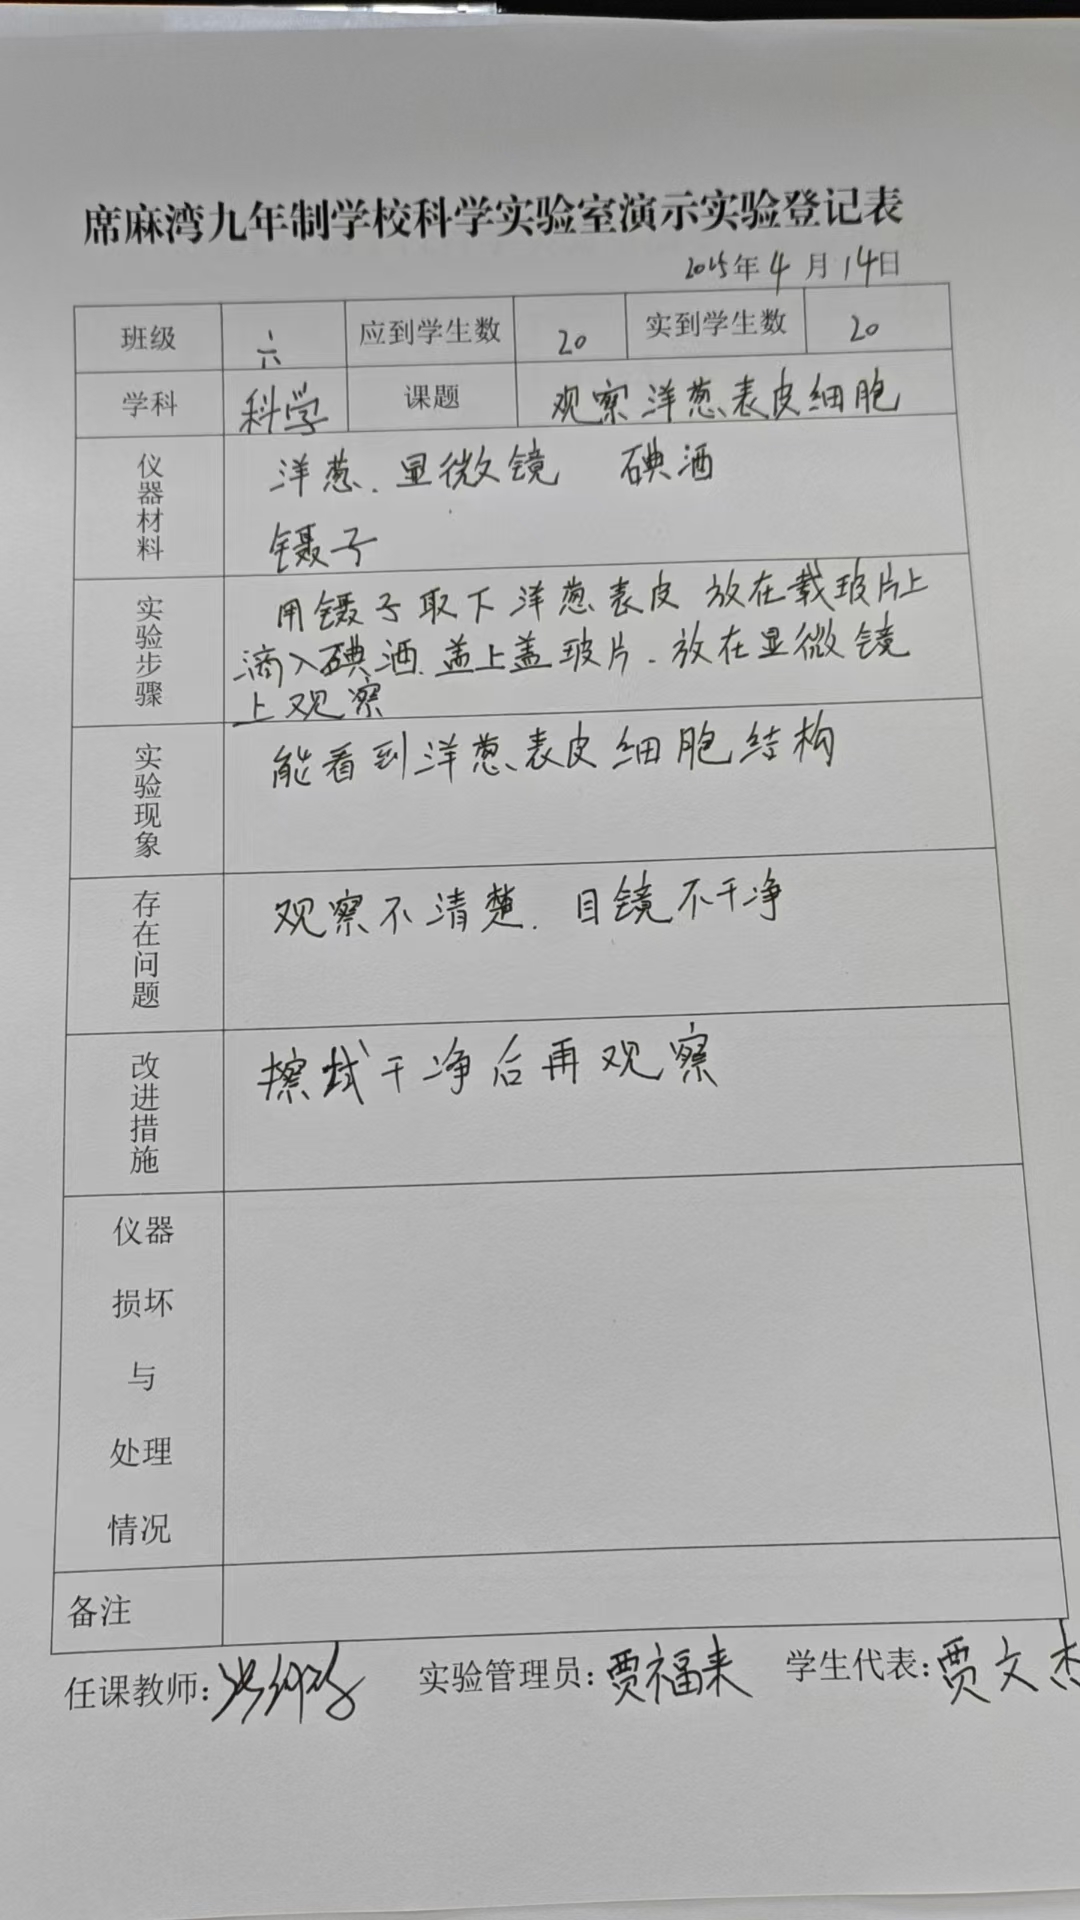 席麻湾九年制学校科学实验室演示实验登记表
2025年4月14日
班级 六 应到学生数 20 实到学生数 20
学科 科学 课题 观察洋葱表皮细胞
仪器材料 洋葱、显微镜 碘酒
镊子
实验步骤 用镊子取下洋葱表皮 放在载玻片上
滴入碘酒.盖上盖玻片.放在显微镜
上观察
实验现象 能看到洋葱表皮细胞结构
存在问题 观察不清楚.目镜不干净
改进措施 擦拭干净后再观察
仪器
损坏
与
处理
情况
备注
任课教师: 实验管理员:贾福来 学生代表:贾文杰